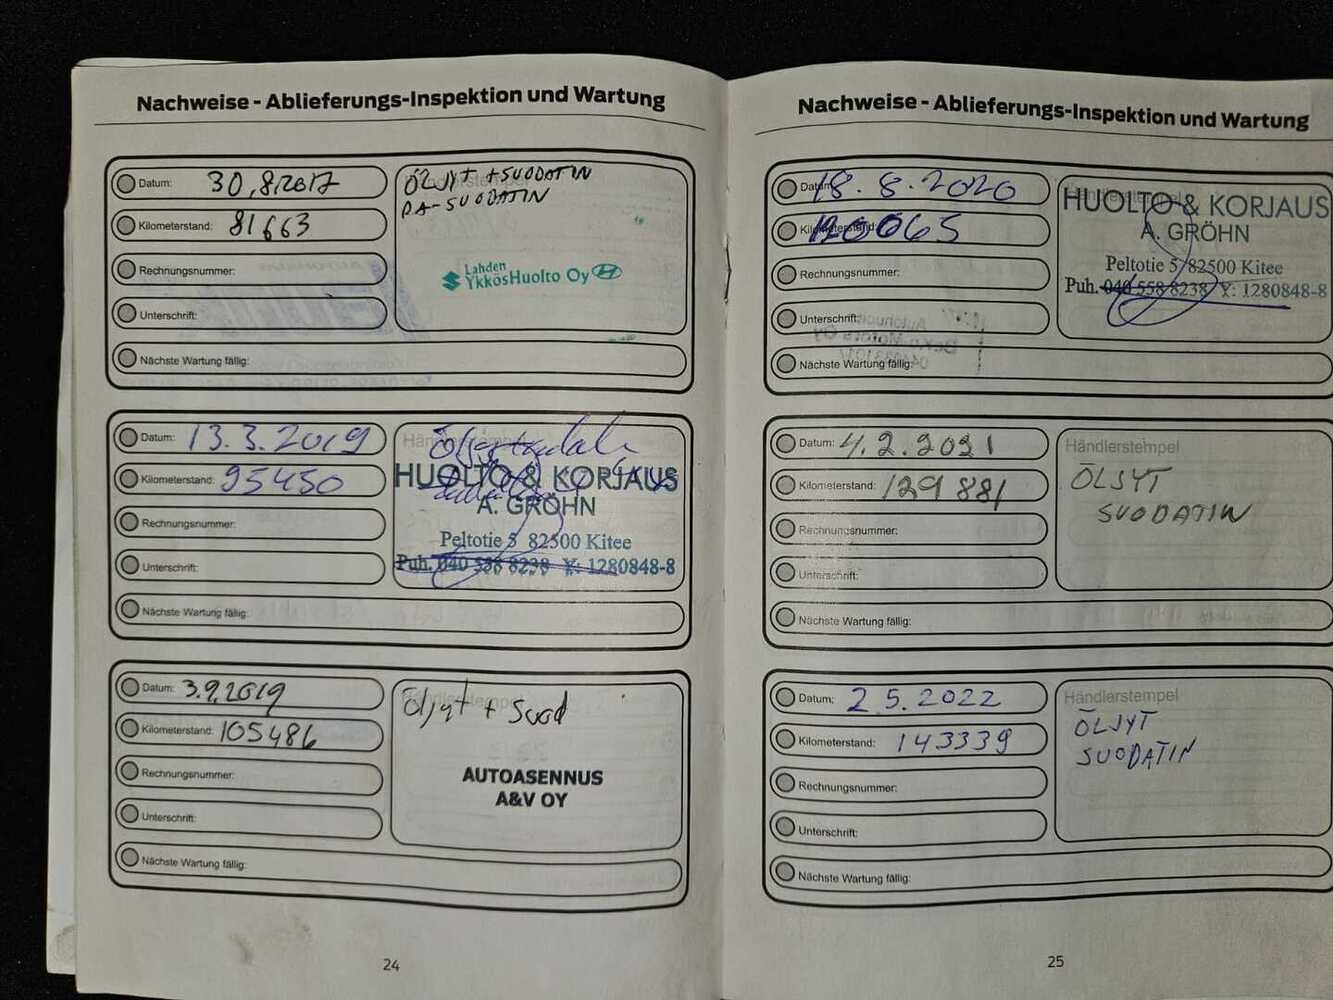 Nachweise - Ablieferungs-Inspektion und Wartung
Datum: 30.8.2017
Kilometerstand: 81663
Rechnungsnummer:
Unterschrift:
Nächste Wartung fällig:
ÖLJYT + SUODATIN
RA-SUODATIN
Lahden
YkkösHuolto Oy
Datum: 13.3.2019
Kilometerstand: 95450
Rechnungsnummer:
Unterschrift:
Nächste Wartung fällig:
HUOLTO & KORJAUS
A. GRÖHN
Peltotie 5 82500 Kitee
Puh. 040 558 8238 Y: 1280848-8
Datum: 3.9.2019
Kilometerstand: 105486
Rechnungsnummer:
Unterschrift:
Nächste Wartung fällig:
Händlerstempel
Öljyt + Suod
AUTOASENNUS
A&V OY
24
Nachweise - Ablieferungs-Inspektion und Wartung
Datum: 18.8.2020
Kilometerstand: 120065
Rechnungsnummer:
Unterschrift:
Nächste Wartung fällig:
HUOLTO & KORJAUS
A. GRÖHN
Peltotie 5 82500 Kitee
Puh. 040 558 8238 Y: 1280848-8
Datum: 4.2.2021
Kilometerstand: 129881
Rechnungsnummer:
Unterschrift:
Nächste Wartung fällig:
Händlerstempel
ÖLJYT
SUODATIN
Datum: 2.5.2022
Kilometerstand: 143339
Rechnungsnummer:
Unterschrift:
Nächste Wartung fällig:
Händlerstempel
ÖLJYT
SUODATIN
25